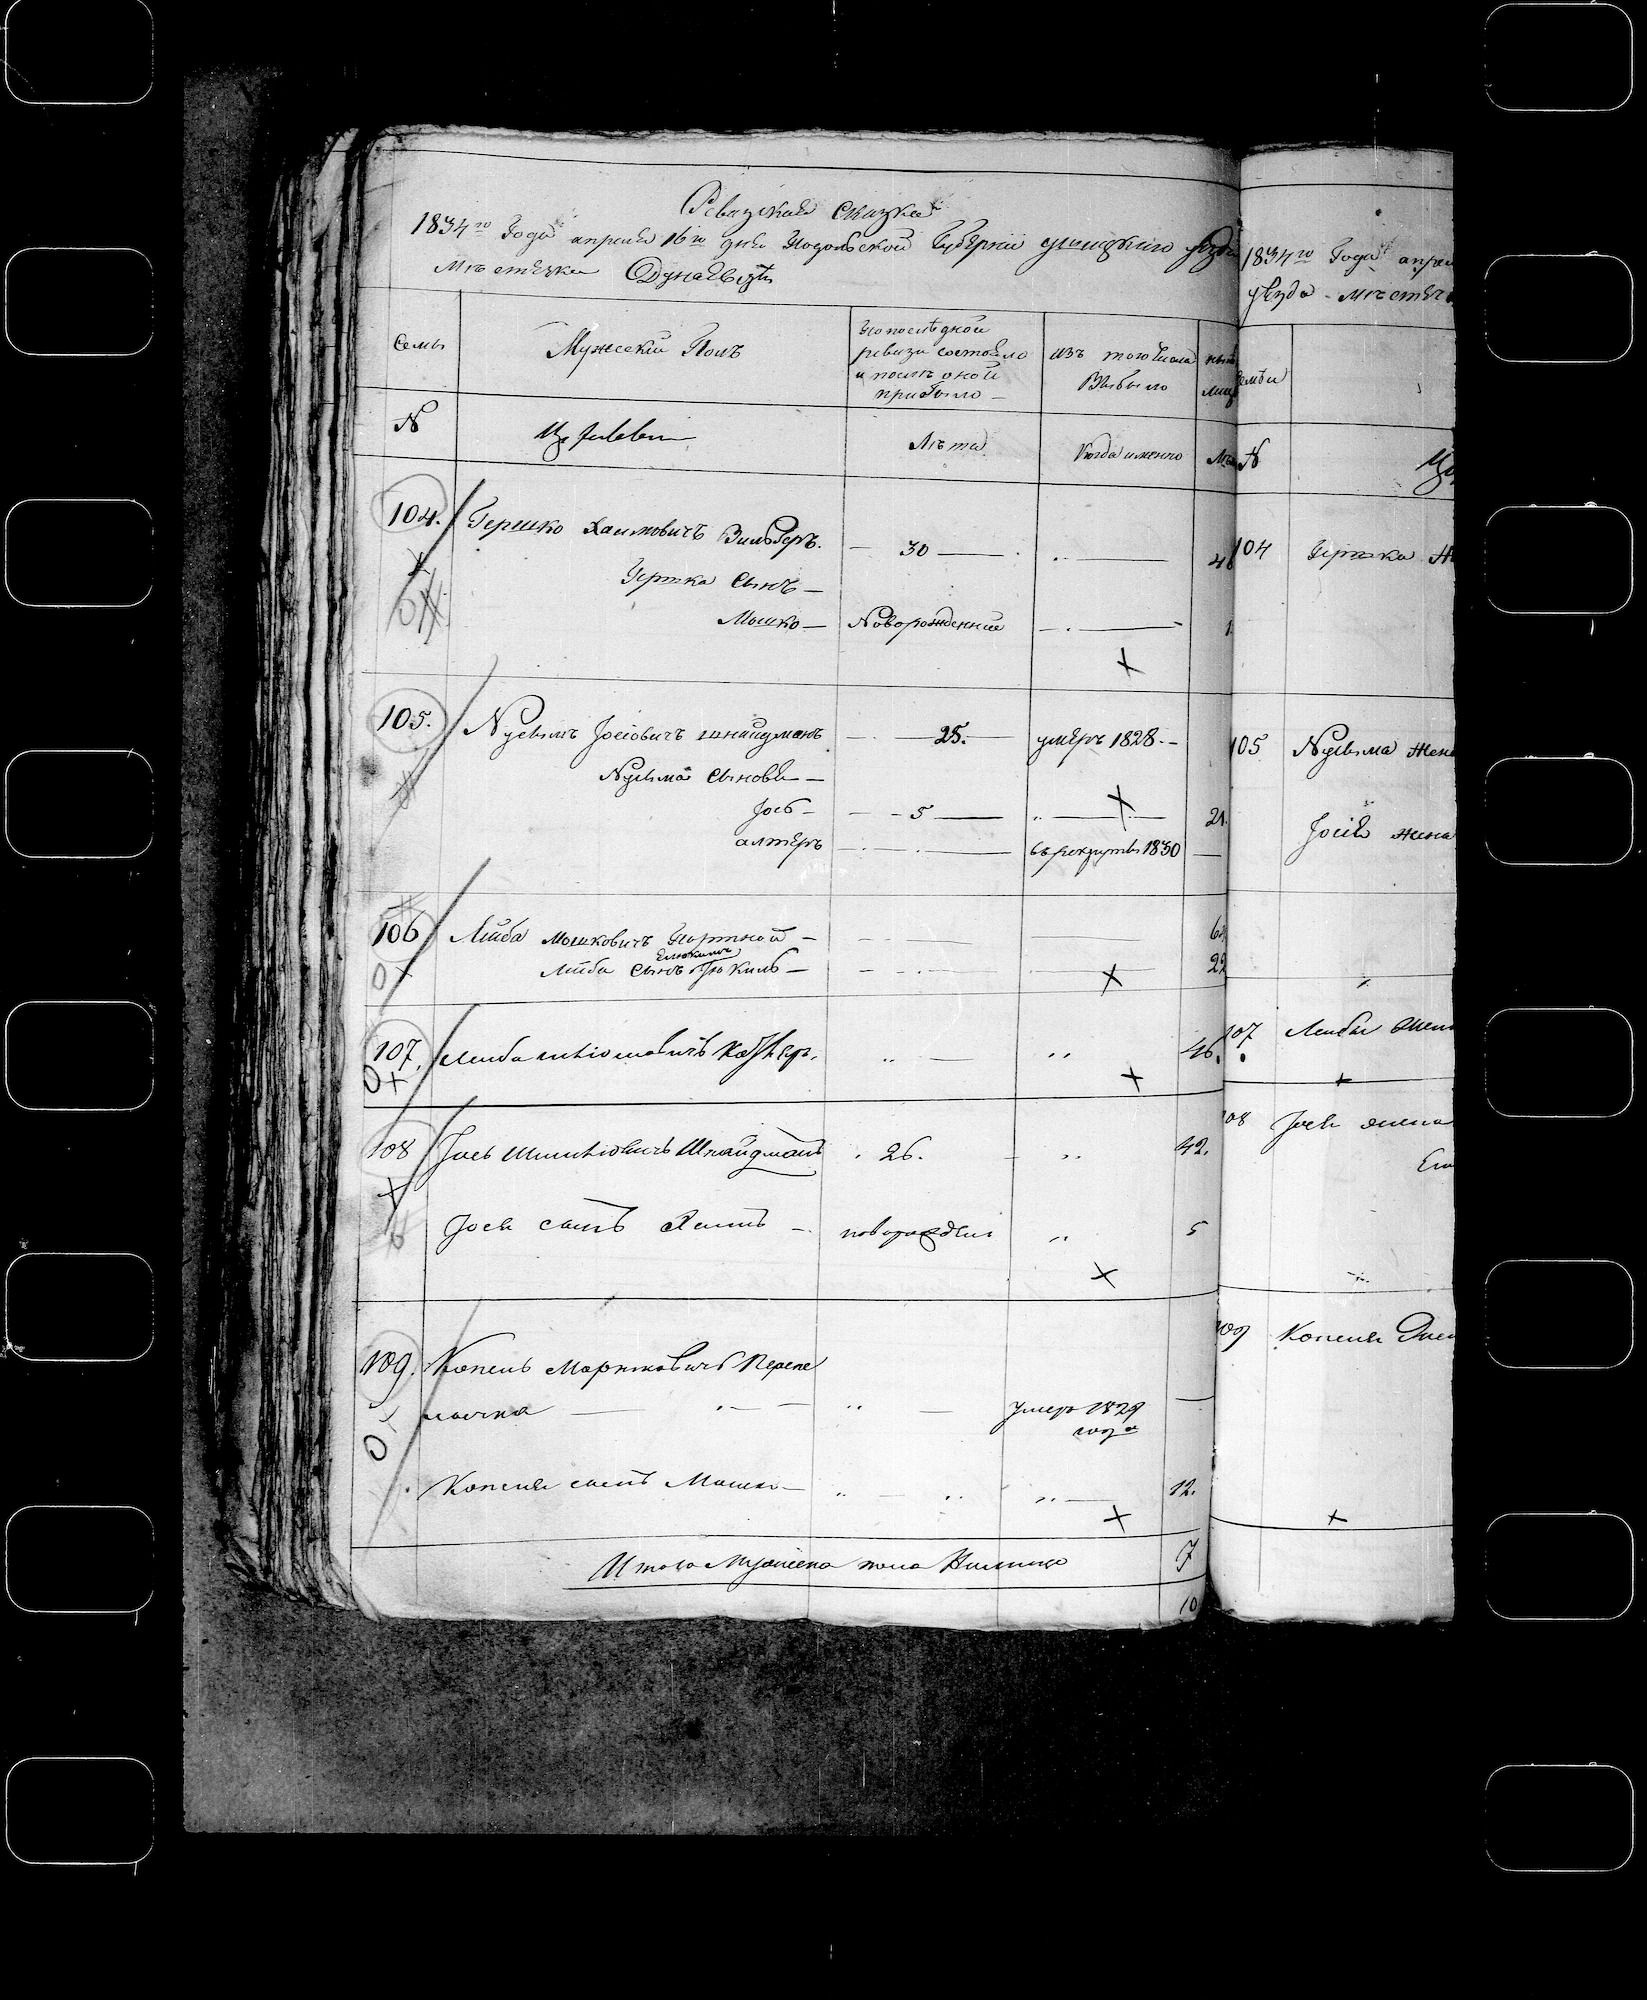 Ревизская Сказка
1834го Года апреля 16го дня Подольской Губернии Ушицкого уезда
Местечка Дунаевцы
Семьи
Мужеский Полъ
По последной ревизи состояло и после оной прибыло
изъ того числа Выбыло
№
Лета
Когда именно
104. Гершко Хаимовичъ Зильберъ. 30
Гершка Сынъ
Мошко Новорожденный 1
105. Нусымъ Іосіовичъ шнайдманъ 25. умеръ 1828.
Нусыма Сыновья
Іось 5 21.
алтеръ въ рекруты 1830
106 Лейба Мошковичъ Портной
Лейба Сынъ 22
107. Лейба 46.
108 Іось Шмулёвичъ Шнайдманъ 26. 42.
Іося сынъ Хаимъ новорожден 5
109. Копель Марковичъ Перепе
личка умеръ 1829
года
Копеля сынъ Мошко 12.
Итого Мужеска пола Налицо 7
10
1834го Года апрел
уезда Местеч
Семьи
№
104 Гершка Ж
105 Нусыма жена
Іося жена
107 Лейбы жен
108 Іося жена
109 Копеля жен